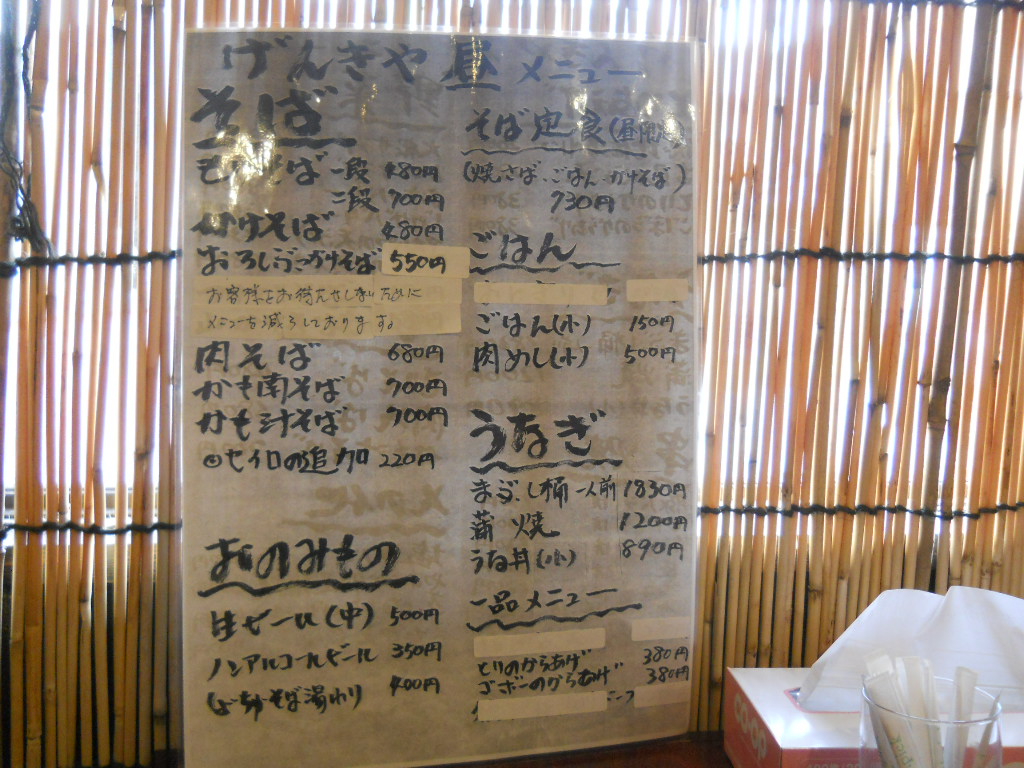 げんきや 昼 メニュー
そば
もりそば 一段 480円
二段 700円
かけそば 480円
おろしぶっかけそば 550円
お客様をお待たせしないために
メニューを減らしております。
肉そば 680円
かも南そば 700円
かも汁そば 700円
セイロの追加 220円
おのみもの
生ビール(中) 500円
ノンアルコールビール 350円
そば湯わり 400円
そば定食(昼限定)
(焼さば、ごはん、かけそば)
730円
ごはん
ごはん(小) 150円
肉めし(小) 500円
うなぎ
まぶし桶 一人前 1830円
蒲焼 1200円
うな丼(小) 890円
一品メニュー
とりのからあげ 380円
ゴボーのからあげ 380円
CO-OP